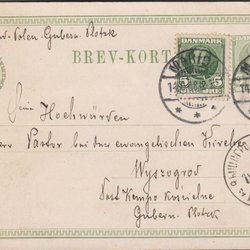 -Polen-Gubern. Plotzk
BREV-KORT
DANMARK
5
Sein Hochwürden
Herrn Pastor bei der evangelischen Kirche
Wyszogrod
Post Kempo
Gubern. Plotzk